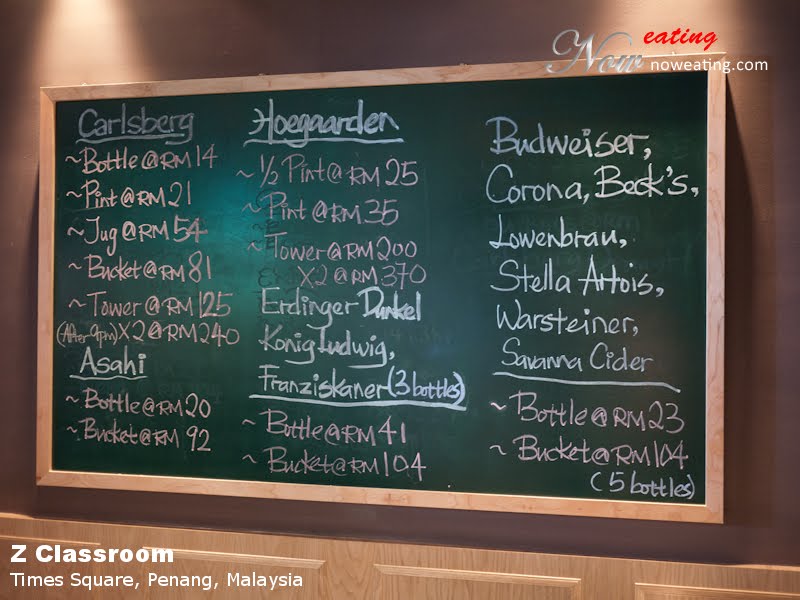 Now eating
noweating.com
Carlsberg
~Bottle@RM14
~Pint@RM21
~Jug@RM54
~Bucket@RM81
~Tower@RM125
(After 9pm)X2@RM240
Asahi
~Bottle@RM20
~Bucket@RM 92
Hoegaarden
~1/2 Pint@RM25
~Pint@RM35
~Tower@RM200
X2@RM370
Erdinger Dunkel
Konig Ludwig,
Franziskaner(3bottles)
~Bottle@RM41
~Bucket@RM104
Budweiser,
Corona, Beck's,
Lowenbrau,
Stella Artois,
Warsteiner,
Savanna Cider
~Bottle@RM23
~Bucket@RM104
(5bottles)
Z Classroom
Times Square, Penang, Malaysia